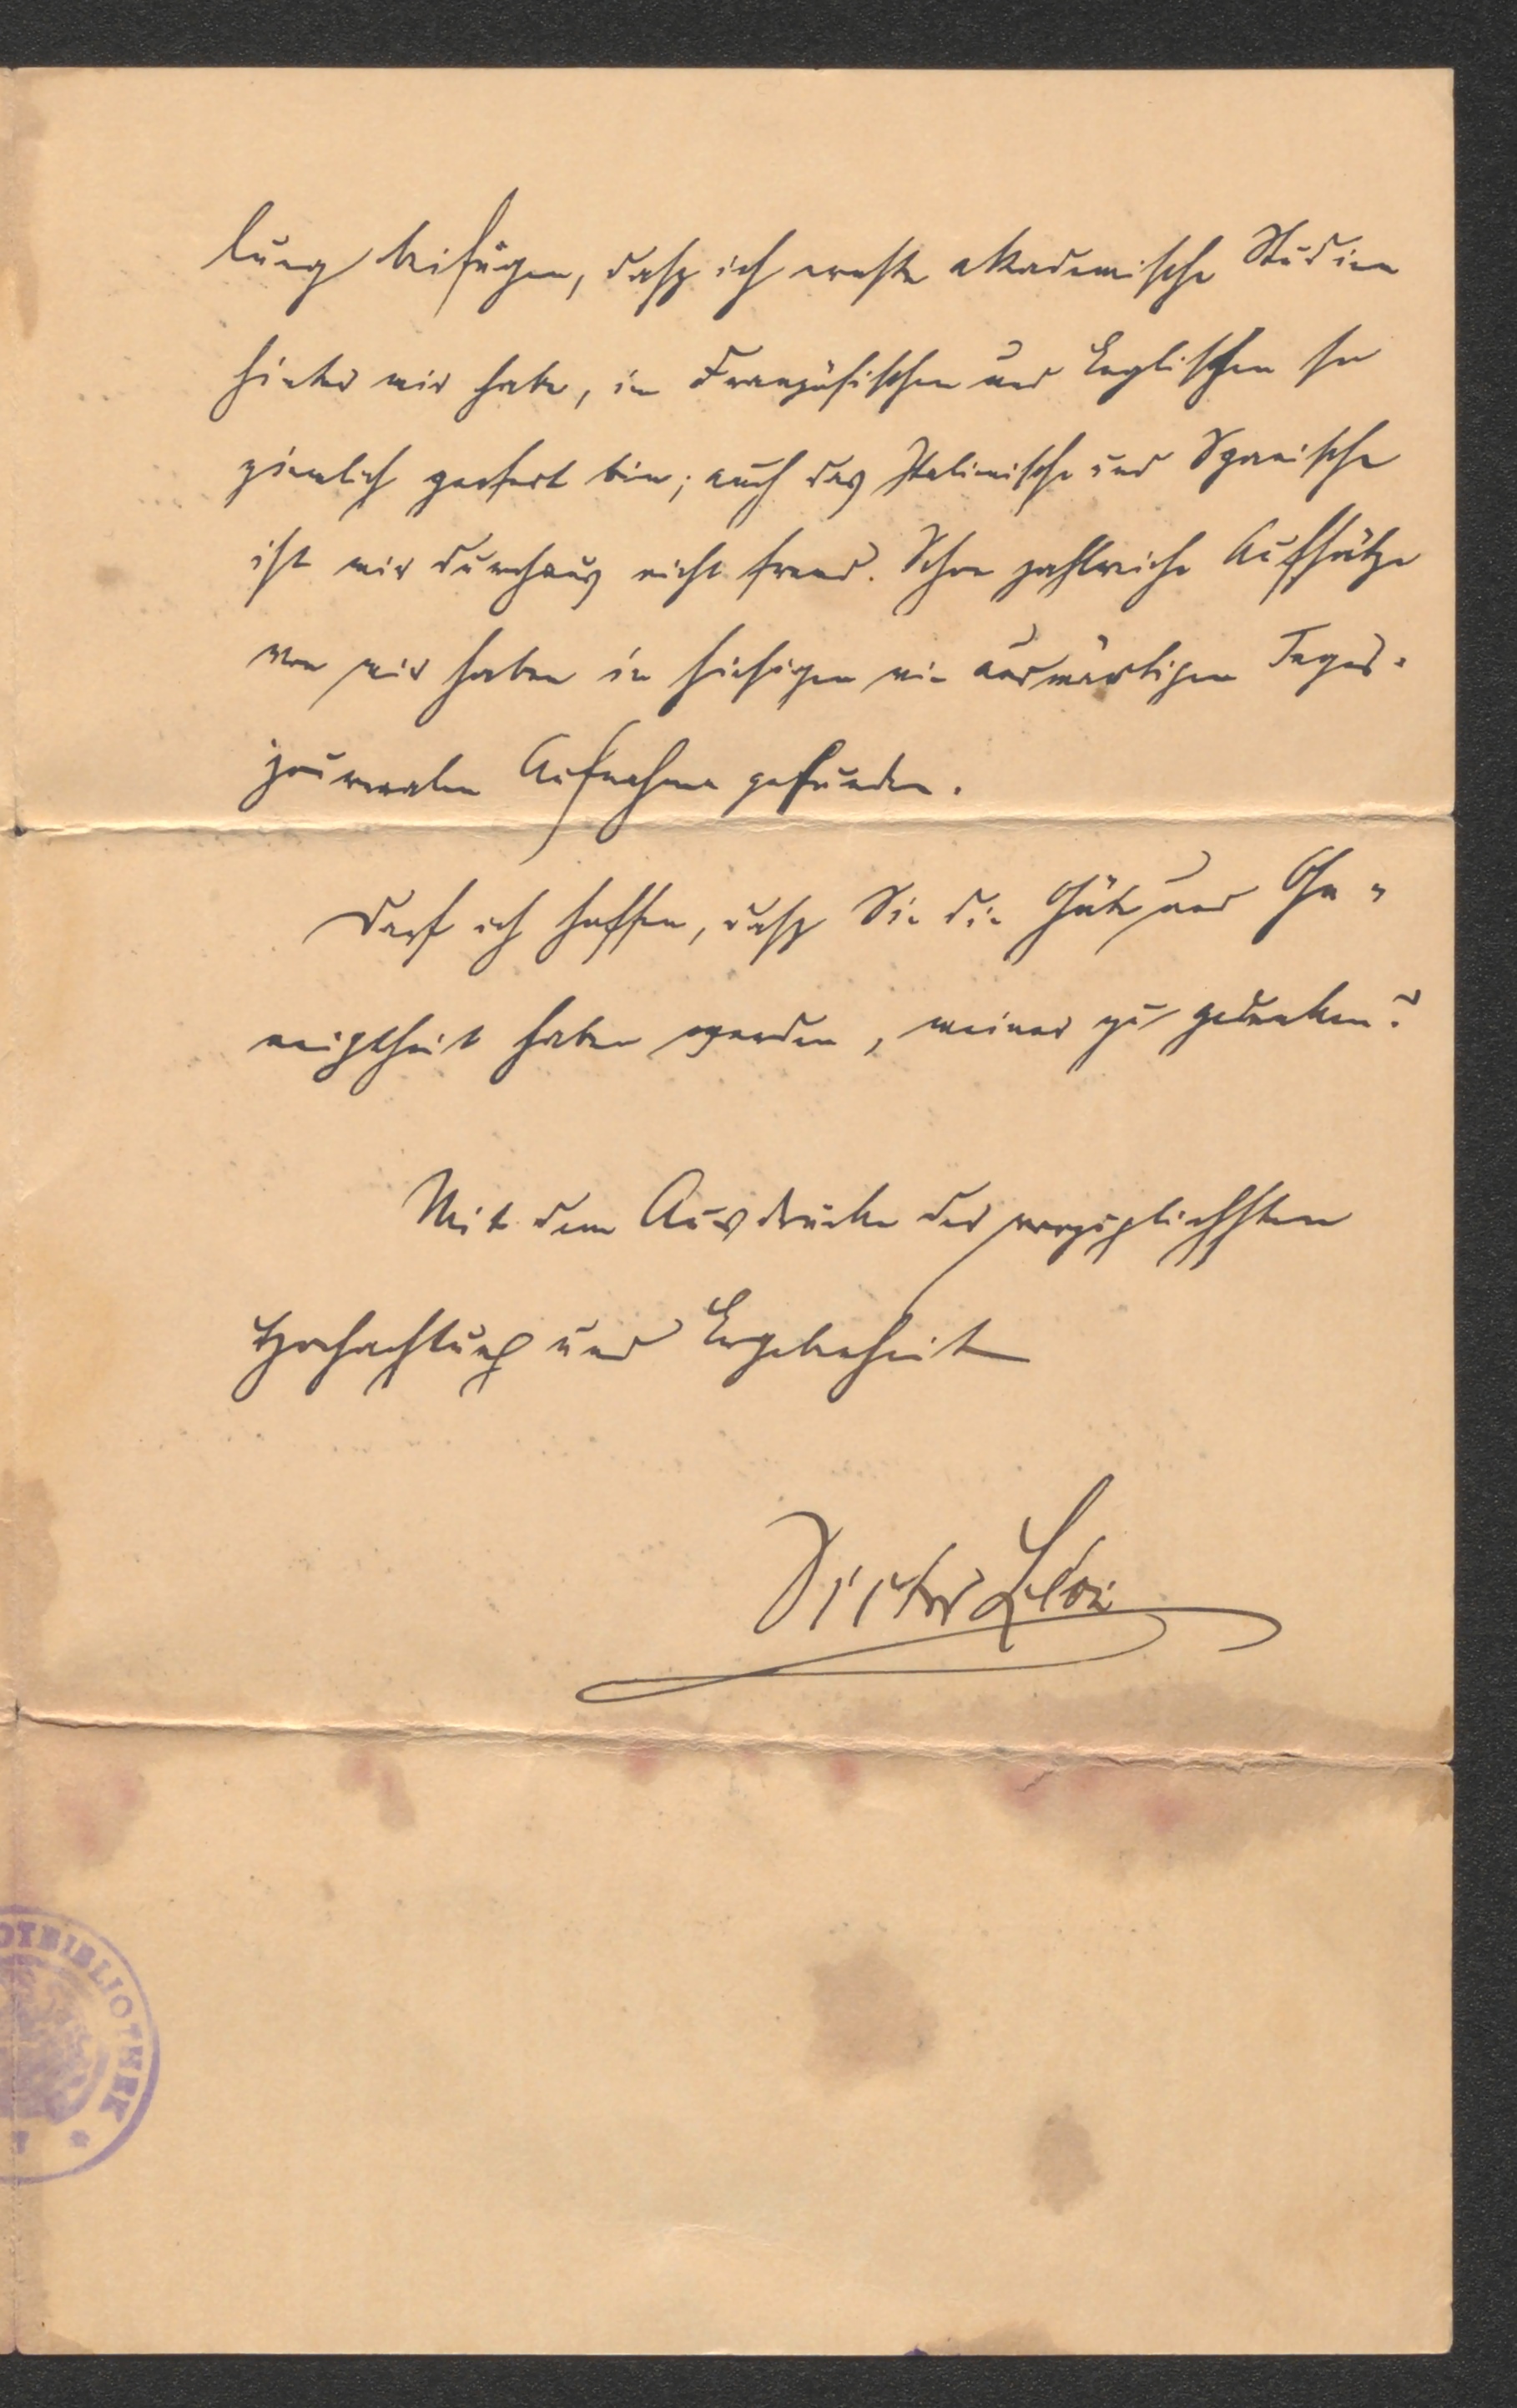 lung beifügen, dass ich ernste akademische Studien
hinter mir habe, im Französischen und Englischen so
ziemlich geübt bin; auch das Italienische und Spanische
ist mir durchaus nicht fremd. Schon zahlreiche Aufsätze
von mir haben in hiesigen wie auswärtigen Tages-
journalen Aufnahme gefunden.
Darf ich hoffen, dass Sie die Güte und Ge-
neigtheit haben werden, meiner zu gedenken?
Mit dem Ausdrucke der vorzüglichsten
Hochachtung und Ergebenheit
Victor Léon
OTBIBLIOTHEK